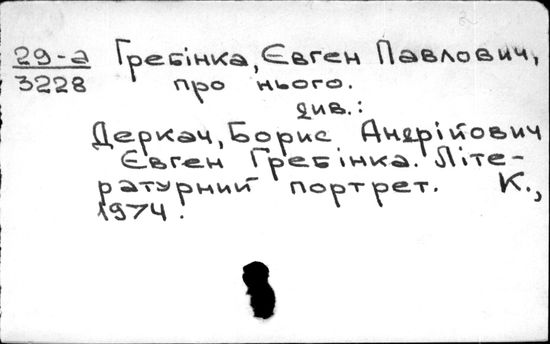 29-а Гребінка, Євген Павлович,
3228 про нього.
див.:
Деркач, Борис Андрійович
Євген Гребінка. Літе-
ратурний портрет. К.,
1974.